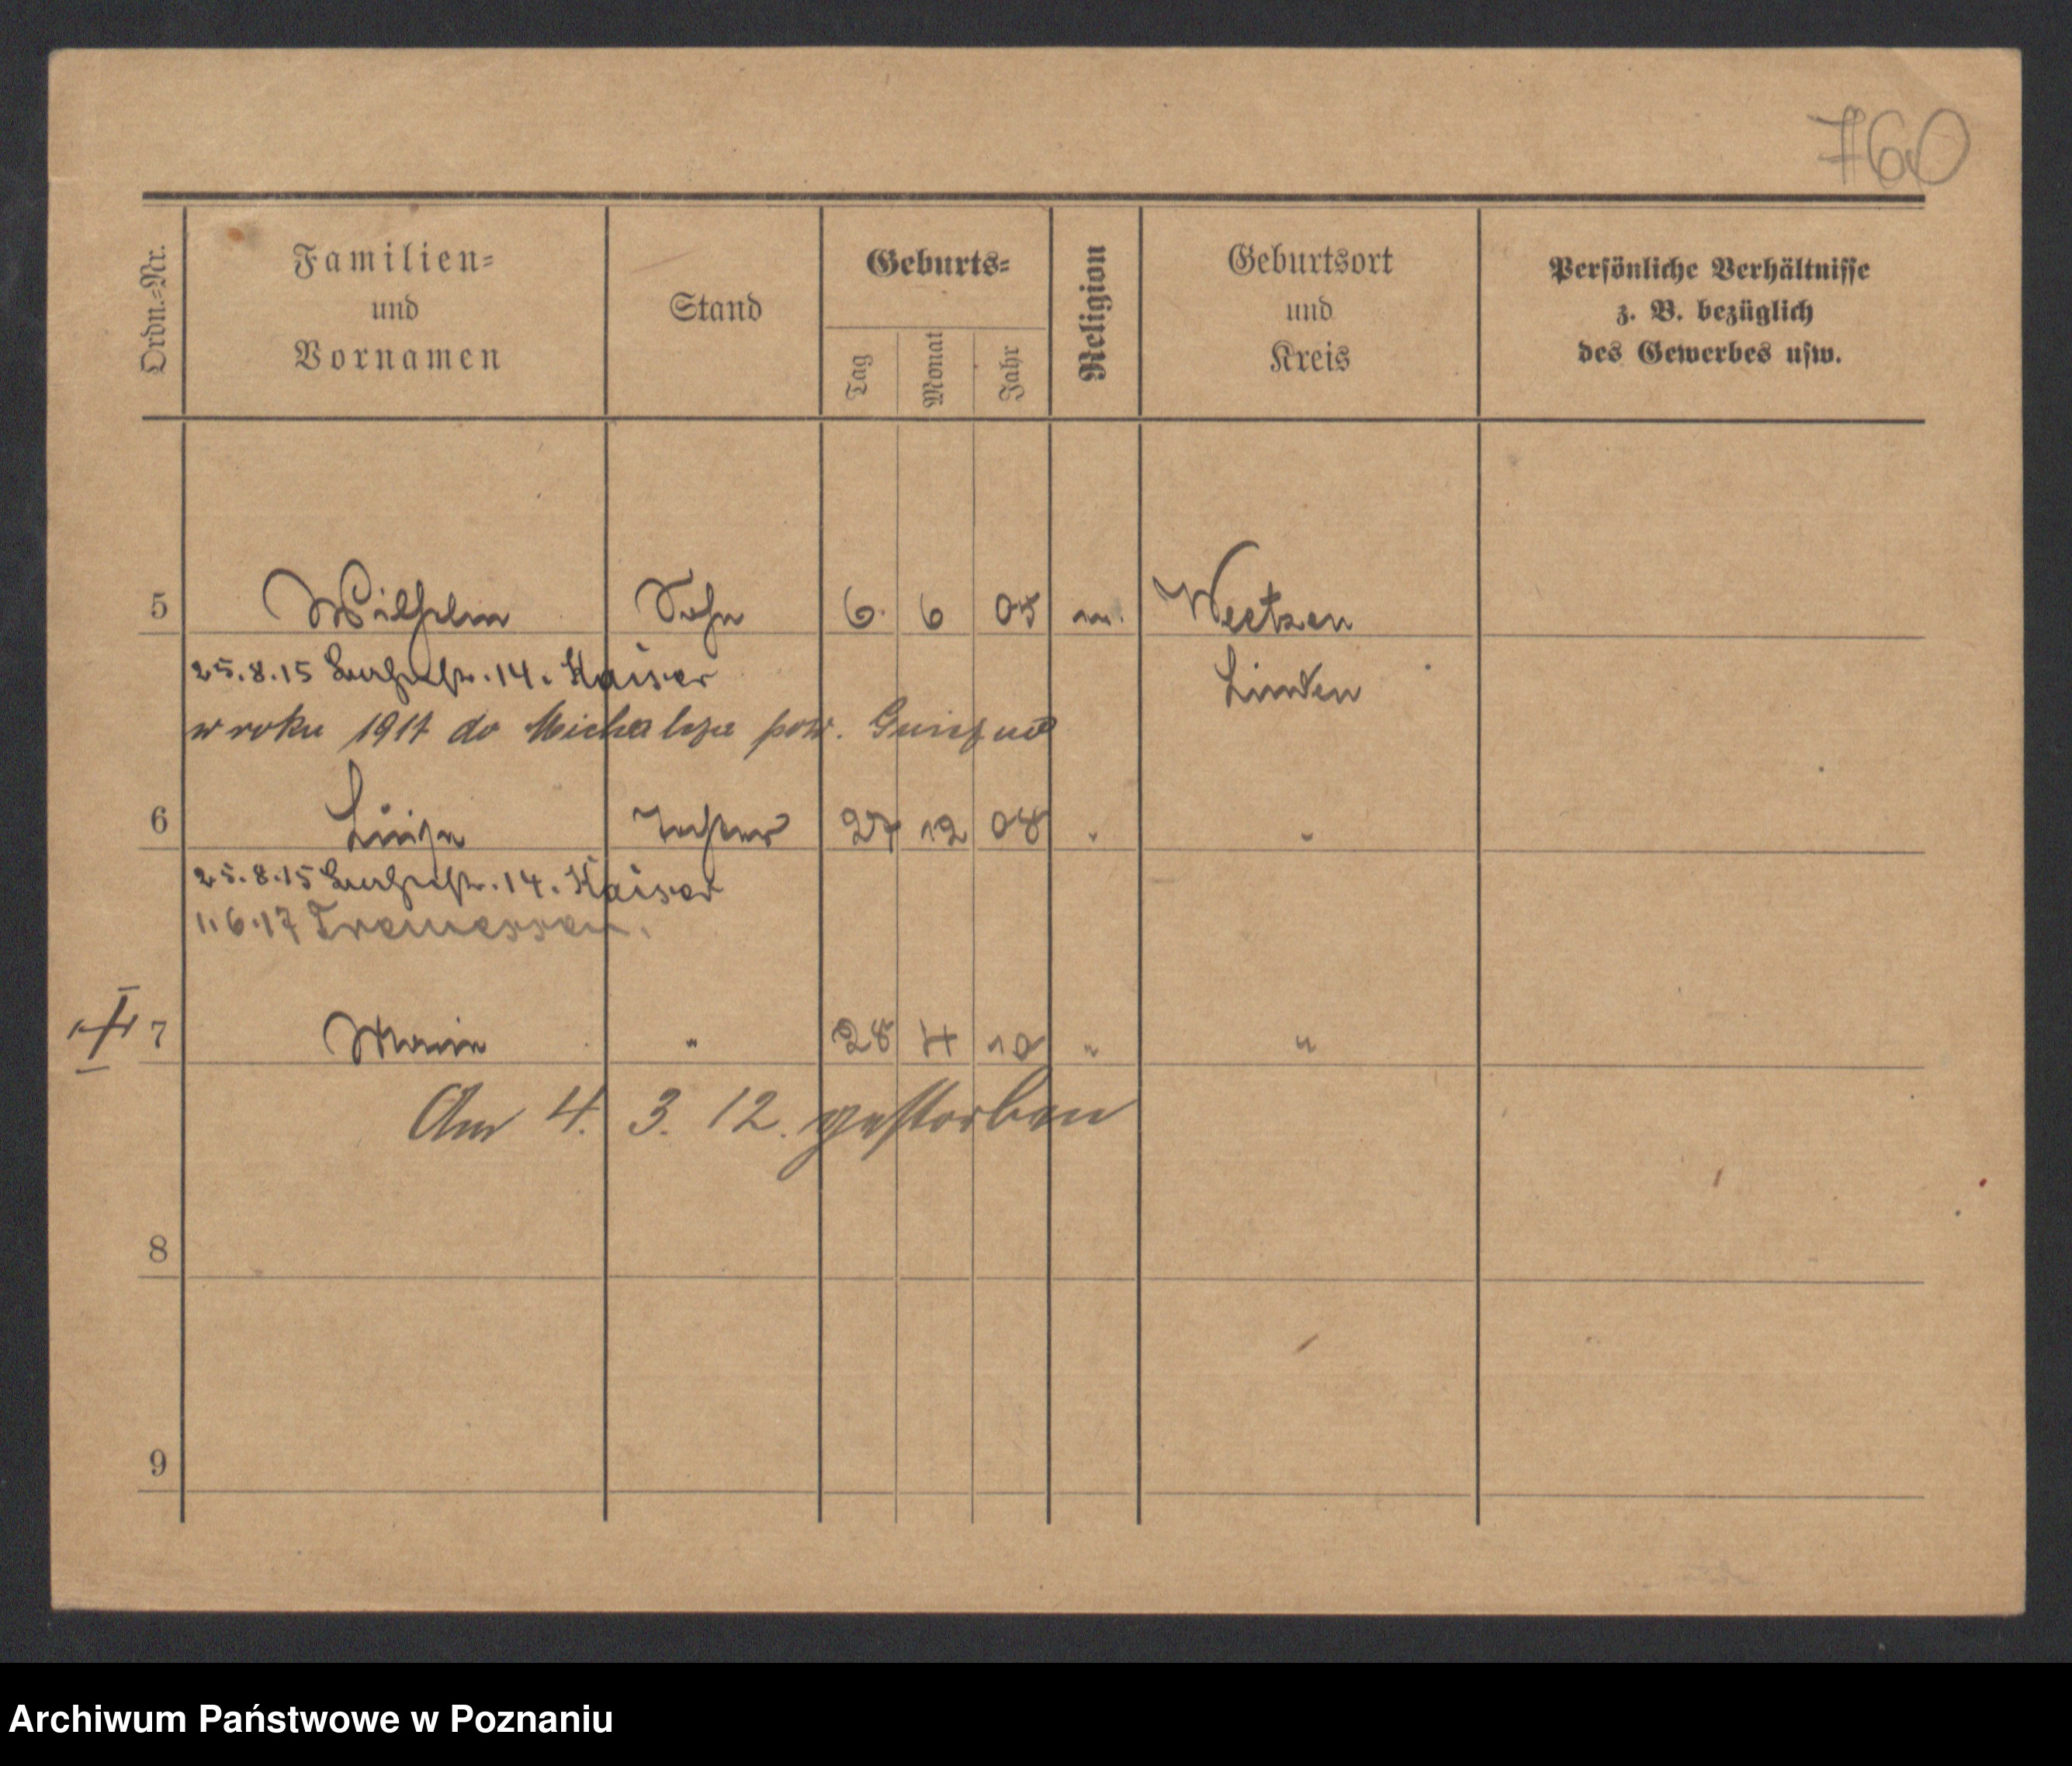 760
Ordn.=Nr.
Familien=
und
Vornamen
Stand
Geburts=
Tag
Monat
Jahr
Religion
Geburtsort
und
Kreis
Persönliche Verhältnisse
z. B. bezüglich
des Gewerbes usw.
5 Wilhelm Sohn 6. 6 05 Weetzen
25.8.15 14. Kaiser
Linden
w roku 1917 do pow.
6 Luise Tochter 27 12 08 "
25.8.15 14. Kaiser
1.6.17 Tremessen.
7 Marie " 28 4 10 " "
Am 4. 3. 12. gestorben
8
9
Archiwum Państwowe w Poznaniu